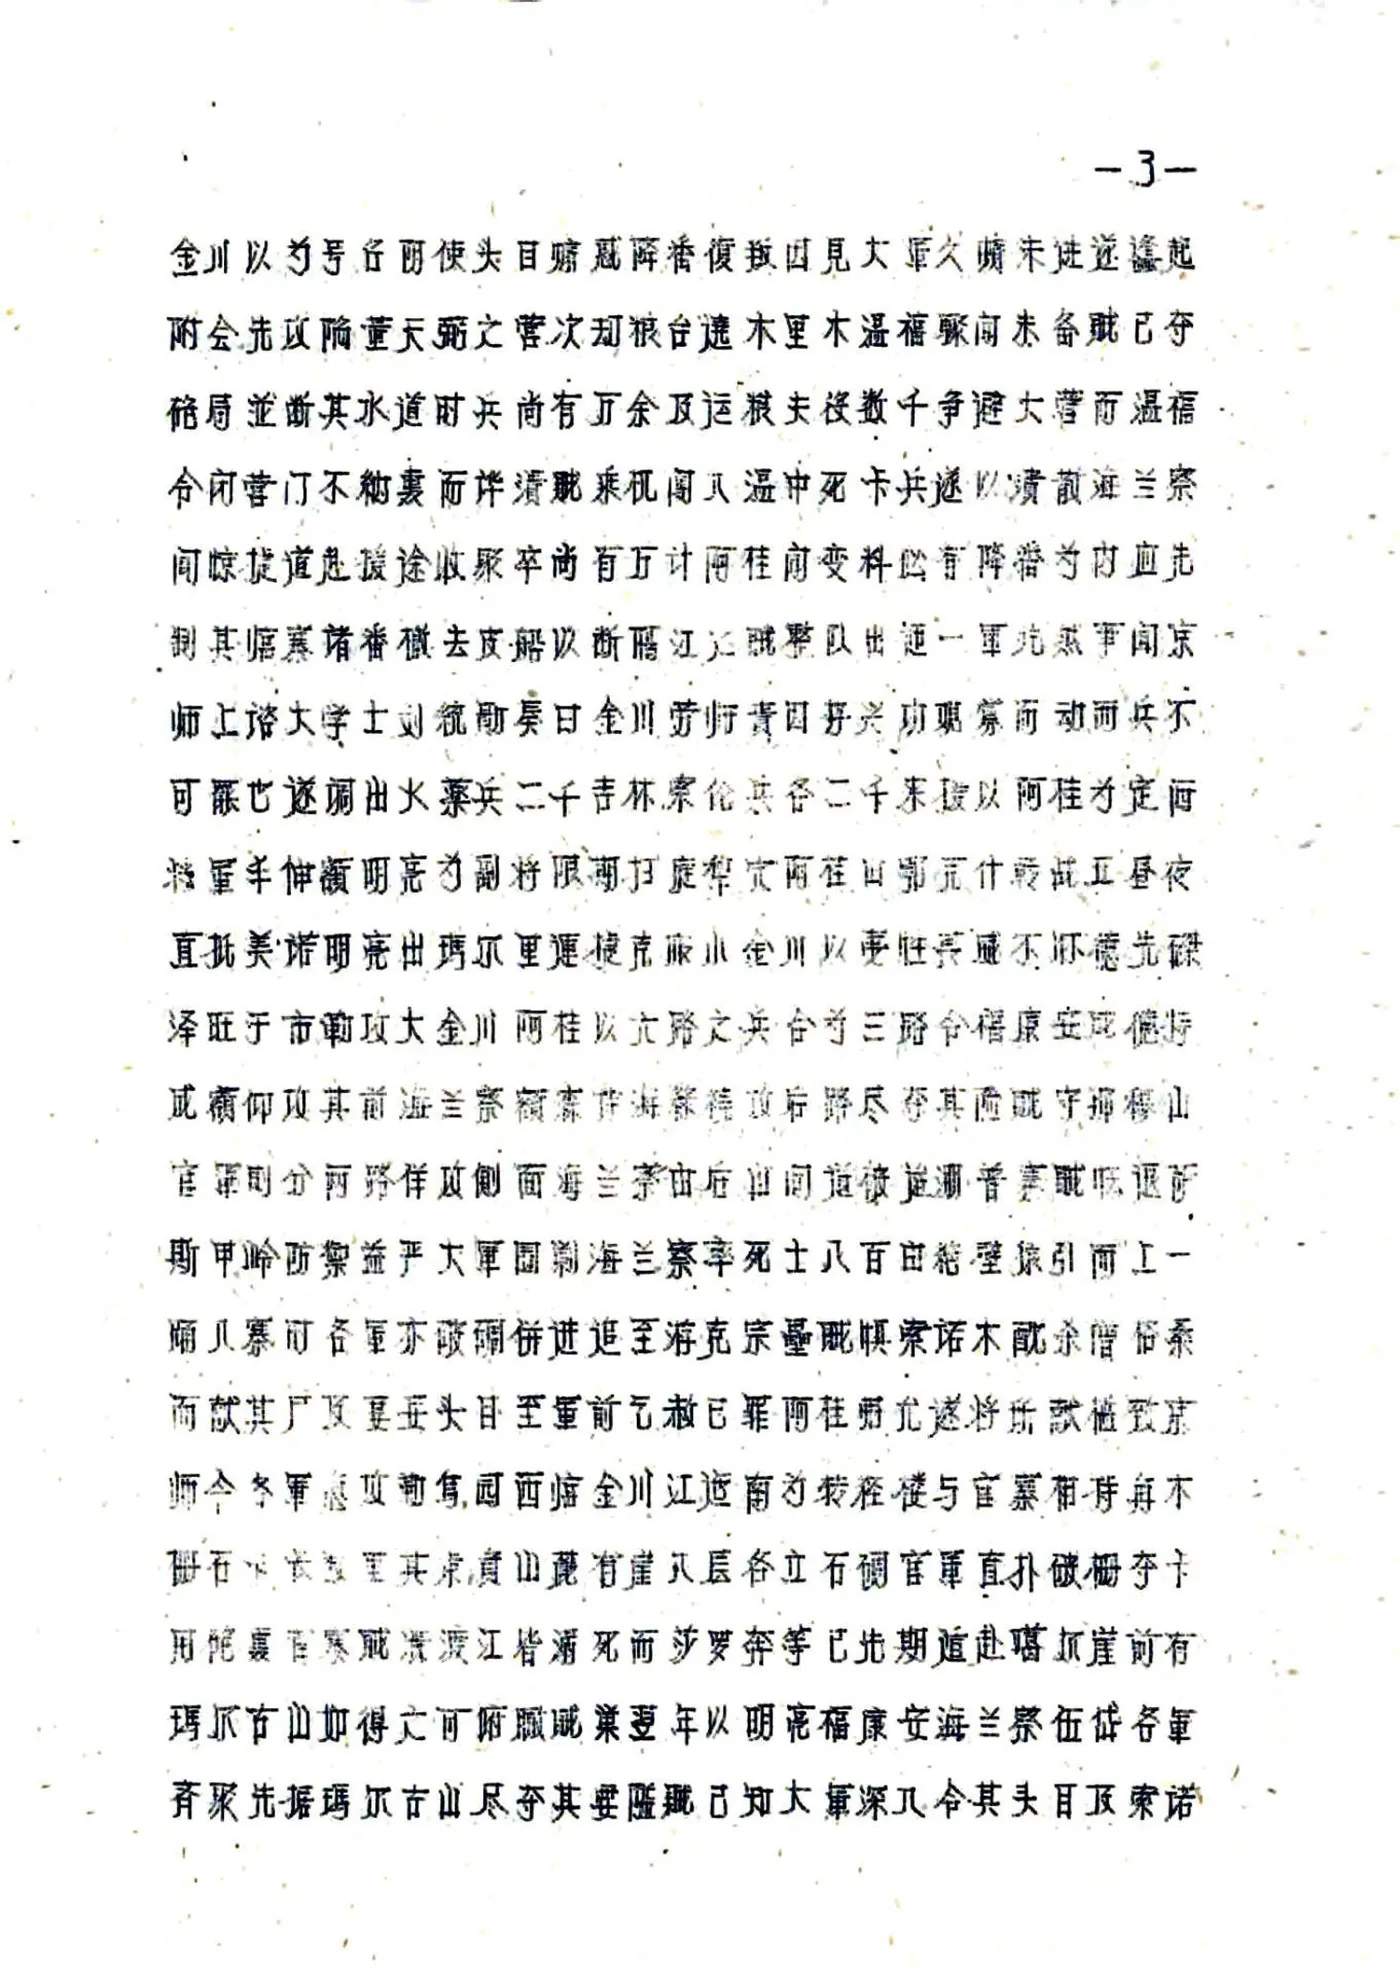 —3—
金川以为号召阴使头目赎冠降番復叛因見大軍久顿未进遂蠭起
附会先攻陷董天弼之营次却粮台逮木里木温福骤闻未备贼已夺
碉局並断其水道时兵尚有万余及运粮夫役数千争避大营而温福
令闭营门不纳裏而哗溃贼乘机闯入温中死卡兵遂以溃散海兰察
闻惊捷道赴援途收聚卒尚有万计阿桂闻变料必有降番为内应先
制其临寨诸番檄去皮船以断隔江之贼整队出迎一軍先然事闻京
师上谘大学士刘统勋奏曰金川劳师責因好兴功贼寨而动而兵不
可罷也遂调出火药兵二千吉林索伦兵各二千来援以阿桂为定西
将軍丰伸额明亮为副将限期扫庭犁穴阿桂由鄂克什转战五昼夜
直抵美诺明亮出瑪尔里連捷克服小金川以夢旺長贼不怀德先磔
泽旺于市勒攻大金川阿桂以六路之兵合为三路令福康安成德特
成额仰攻其前海兰察额森特海禄繞攻后路尽夺其险贼守那穆山
官軍则分两路佯攻侧面海兰察由后山间道倏道潮普寨贼咗逼所
斯甲岭防禦益严大軍围剿海兰察率死士八百由绝壁猿引而上一
顺入寨时各軍亦破碉併进追至游克宗壘贼惧索诺木酖杀僧格桑
而献其尸及妻妾头目至軍前乞赦已罪阿桂弗允遂将所献槛致京
师令各軍急攻勒乌园西临金川江迤南为转经楼与官寨相持再木
栅石卡长数里其东負山麓有崖八层各立石碉官軍直扑破栅夺卡
用炮裏官寨贼溃渡江皆溺死而莎罗奔等已先期遁赴噶尔崖前有
瑪尔古山如得之可俯瞰贼巢翌年以明亮福康安海兰察伍岱各軍
齐聚先据瑪尔古山尽夺其要隘贼已知大軍深入令其头目及索诺